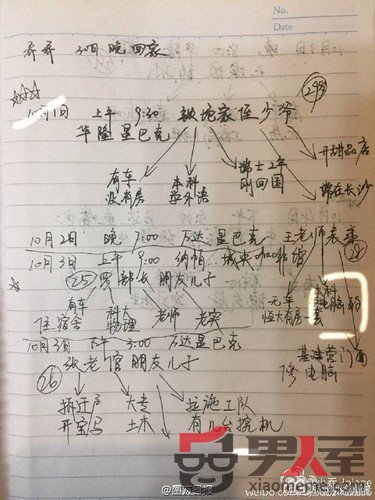 No.
Date
乔乔 30日晚回家
10月1日 上午 9:30 铁饱家侄少爷 29
华隆星巴克
开甜品店
有车
没有房
本科
学外语
瑞士2年
刚回国
常在长沙
10月2日 晚 7:00 万达星巴克 王老师表弟 28
10月3日 上午 9:00 纳帕 城东咖啡馆
25 罗部长 朋友儿子
有车
住宿舍
科大
物理
老师
老实
无车
恒大有房一套
本科
10月3日 下午 3:00 万达星巴克
基建营门面
修电脑
26 张老馆朋友儿子
拆迁户
开宝马
大专
土木
拉施工队
有几台挖机
男人室
xiaomeme.com